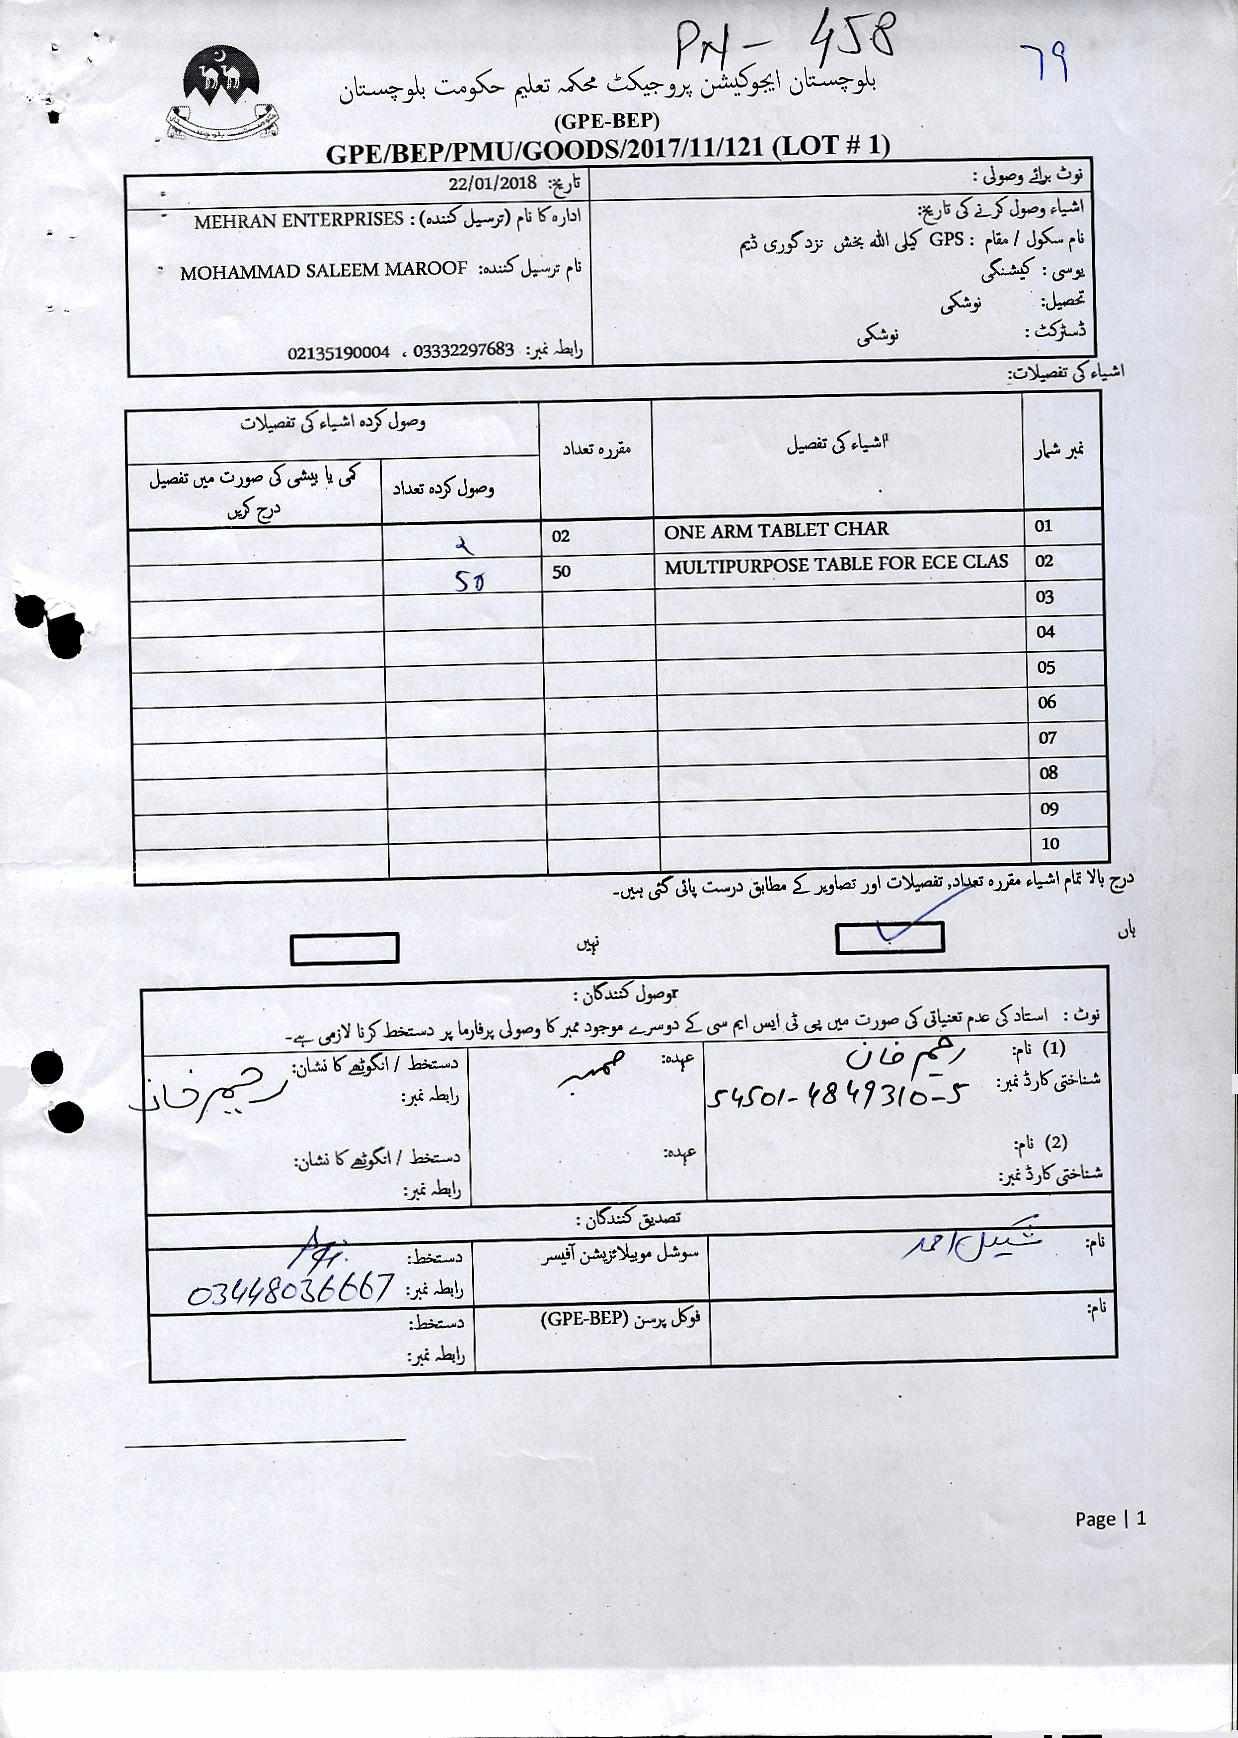 PN - 458
79
بلوچستان ایجوکیشن پروجیکٹ محکمہ تعلیم حکومت بلوچستان
(GPE-BEP)
GPE/BEP/PMU/GOODS/2017/11/121 (LOT # 1)
نوٹ برائے وصولی :
تاریخ: 22/01/2018
اشیاء وصول کرنے کی تاریخ:
ادارہ کا نام (ترسیل کنندہ) : MEHRAN ENTERPRISES
نام سکول / مقام : GPS کیلی اللہ بخش نزد گوری ڈیم
نام ترسیل کنندہ: MOHAMMAD SALEEM MAROOF
یوسی : کیشنگی
تحصیل: نوشکی
ڈسٹرکٹ : نوشکی
رابطہ نمبر: 03332297683 ، 02135190004
اشیاء کی تفصیلات:
نمبر شمار اشیاء کی تفصیل مقررہ تعداد وصول کردہ اشیاء کی تفصیلات
وصول کردہ تعداد کمی یا بیشی کی صورت میں تفصیل
درج کریں
01 ONE ARM TABLET CHAR 02 2
02 MULTIPURPOSE TABLE FOR ECE CLAS 50 50
03
04
05
06
07
08
09
10
درج بالا تمام اشیاء مقررہ تعداد, تفصیلات اور تصاویر کے مطابق درست پائی گئی ہیں۔
ہاں نہیں
وصول کنندگان :
نوٹ : استاد کی عدم تعنیاتی کی صورت میں پی ٹی ایس ایم سی کے دوسرے موجود ممبر کا وصولی پرفارما پر دستخط کرنا لازمی ہے۔
(1) نام: رحیم خان عہدہ: دستخط / انگوٹھے کا نشان: رحیم خان
شناختی کارڈ نمبر: 54501-4849310-5 رابطہ نمبر:
(2) نام: عہدہ: دستخط / انگوٹھے کا نشان:
شناختی کارڈ نمبر: رابطہ نمبر:
تصدیق کنندگان :
نام: شکیل احمد سوشل موبیلائزیشن آفیسر دستخط:
رابطہ نمبر: 03448036667
نام: فوکل پرسن (GPE-BEP) دستخط:
رابطہ نمبر:
Page | 1